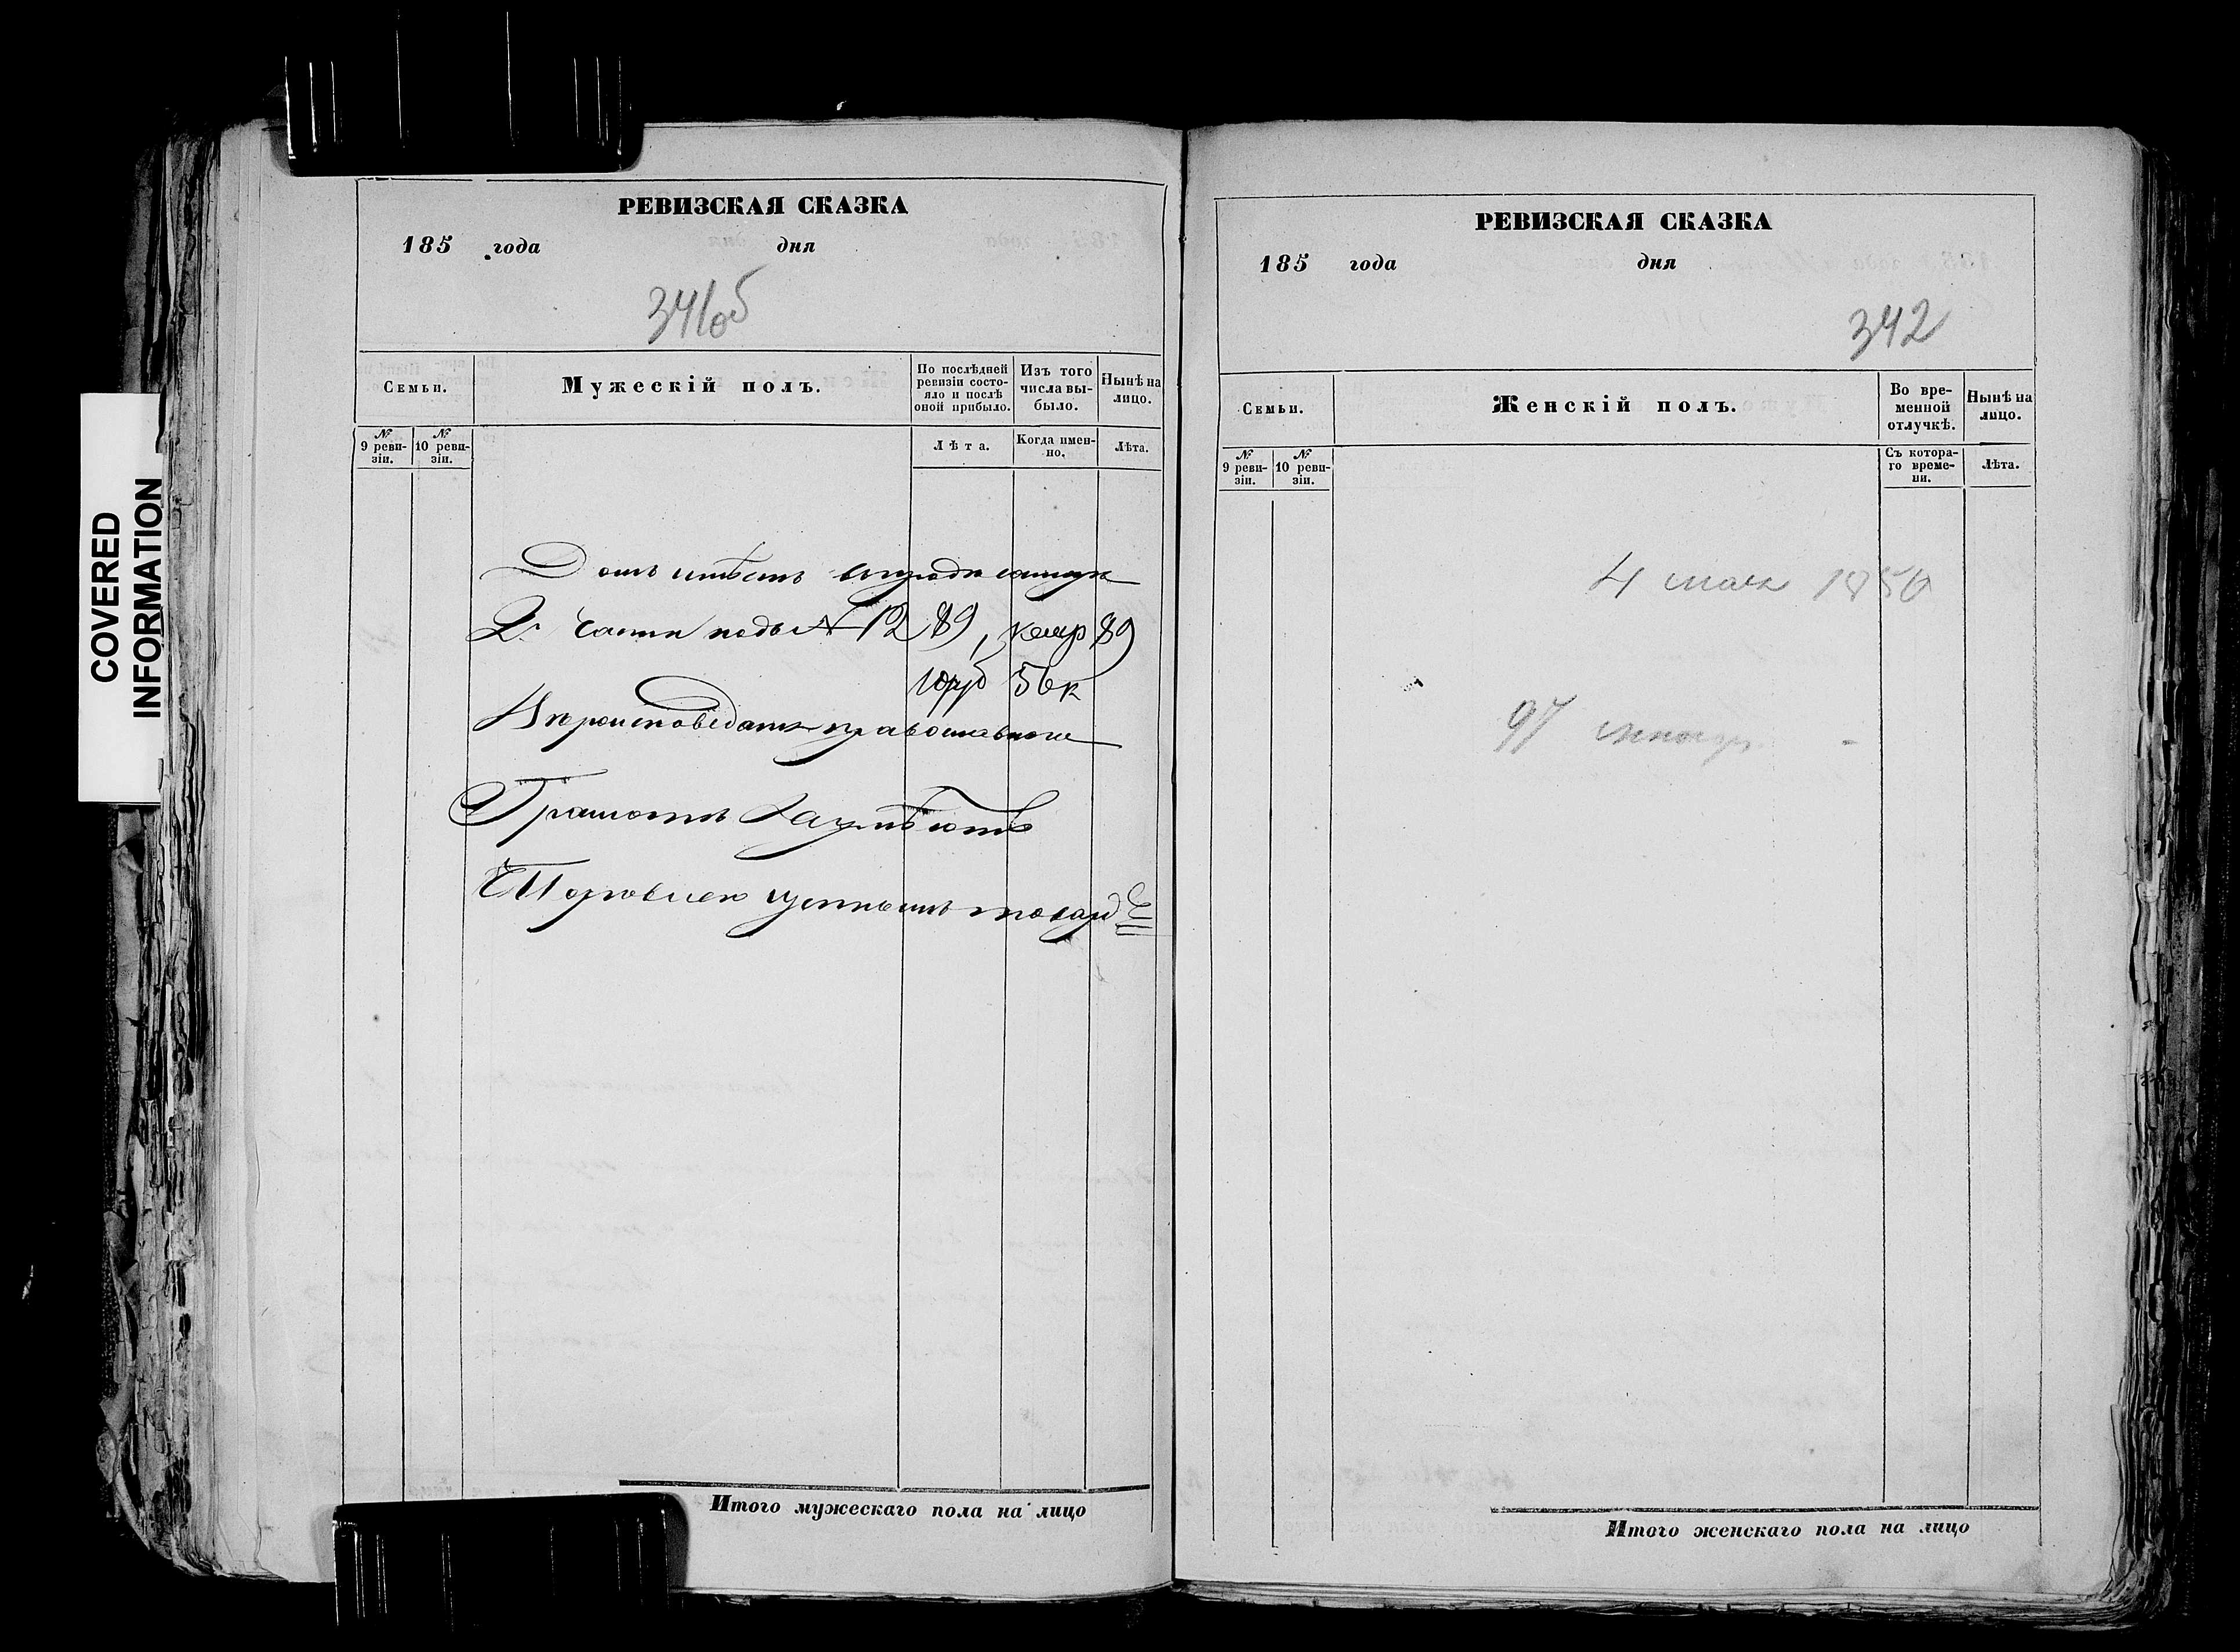 COVERED
INFORMATION
РЕВИЗСКАЯ СКАЗКА
185 года дня
341об
Семьи.
Мужескій полъ.
По послѣдней ревизіи состояло и послѣ оной прибыло.
Изъ того числа выбыло.
Нынѣ на лицо.
№ 9 ревизіи.
№ 10 ревизіи.
Лѣта.
Когда именно.
Лѣта.
Домъ имѣетъ
2й части подъ № 1289,
10 руб 56 к
Вѣроисповеданія православнаго
Грамотѣ
Торговлею
РЕВИЗСКАЯ СКАЗКА
185 года дня
342
Семьи.
Женскій полъ.
Во временной отлучкѣ.
Нынѣ на лицо.
№ 9 ревизіи.
№ 10 ревизіи.
Съ котораго времени.
Лѣта.
4 мая 1850
97
Итого мужескаго пола на лицо
Итого женскаго пола на лицо